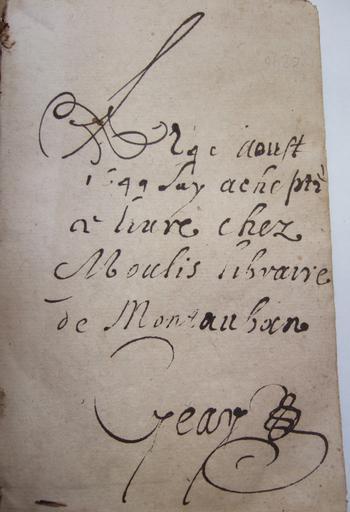 aoust
Jay achepté
ce liure chez
Moulis libraire
de Montauban
Geay